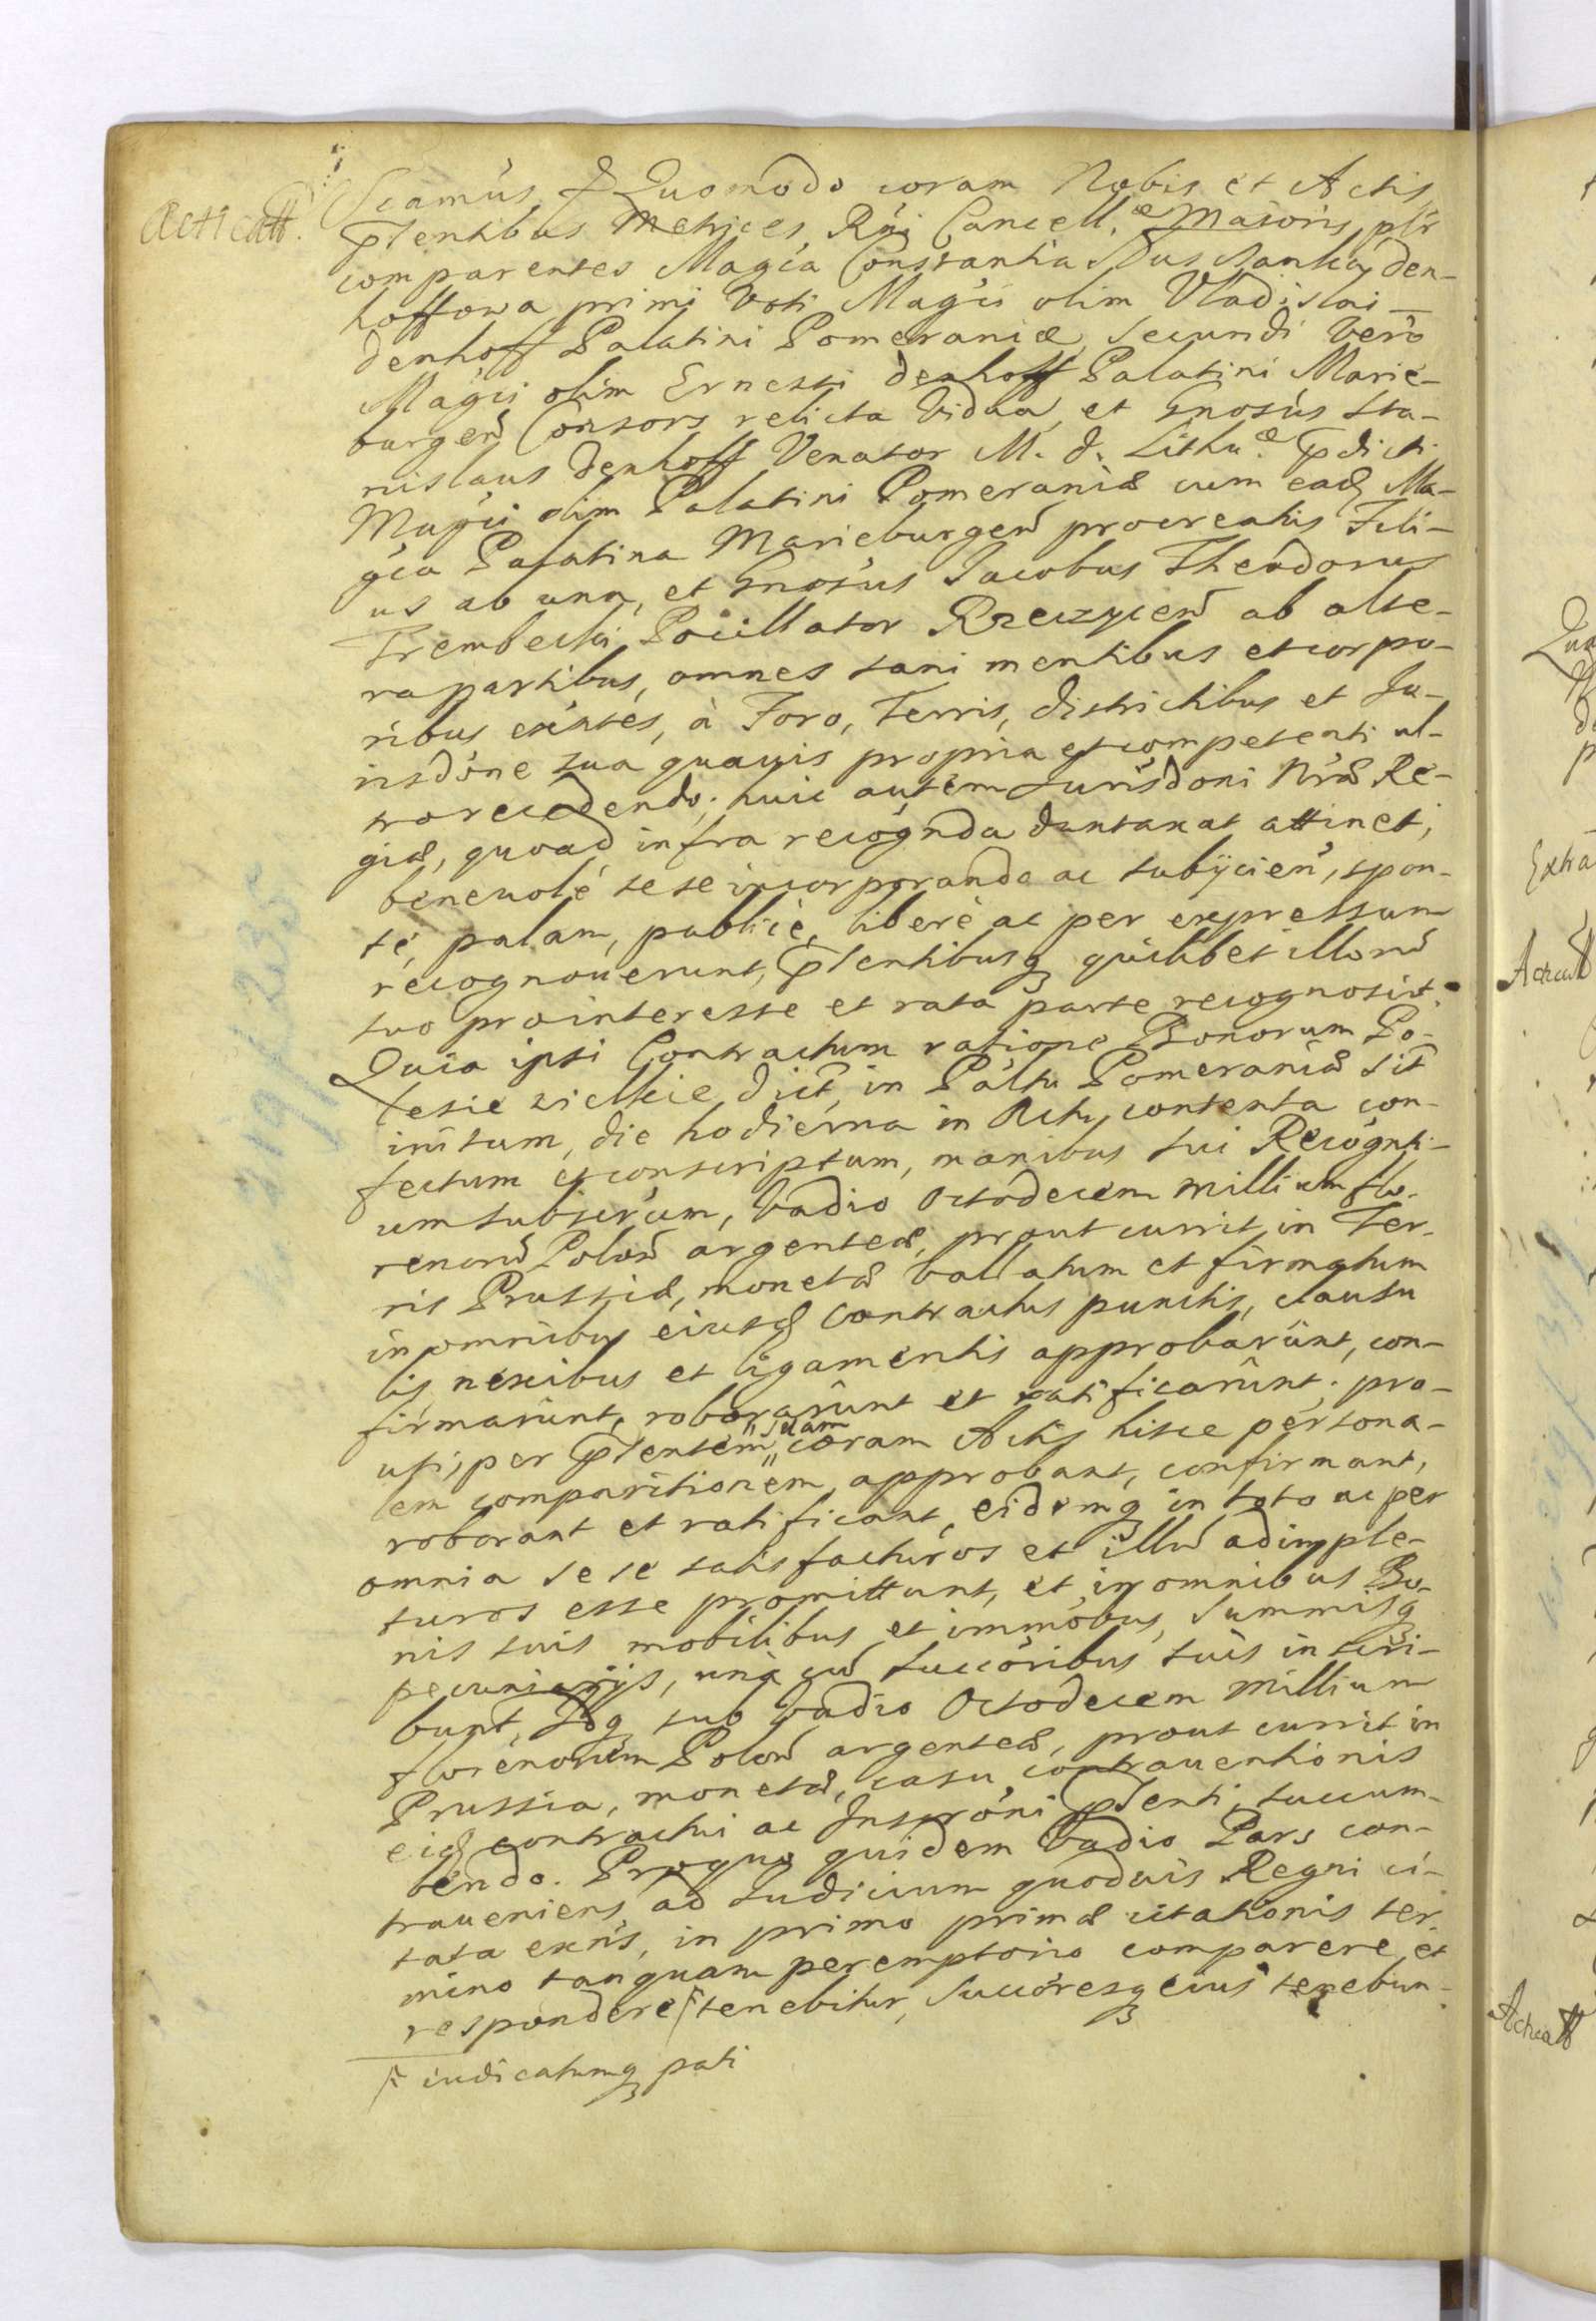 Acticatt.
Scamus & Quomodo coram Nobis et Actis
pntentibus Metrices Rni Cancell.æ Maioris plr
comparentes Magca Constantia Den-
hoffowa primi Voti Magci olim Vladislai
Denhoff Palatini Pomeraniæ, secundi verò
Magci olim Ernesti Denhoff Palatini Marie-
burgen Consors relicta Vidua, et Gnosus Sta-
nislaus Denhoff Venator M. D. Lithu.æ pdicti
Magci olim Palatini Pomeraniæ cum eadq Ma-
gca Palatina Marieburgen procreatus Fili-
us ab una, et Gnosus Jacobus Theodorus
Trembecki Pocillator Rzeczycen ab alte-
ra partibus, omnes sani mentibus et corpo-
ribus exñtes, à Foro, Terris, Districtibus et Ju-
risdone sua quavis propria et competenti ul-
tro recedendo; huic autem Jurisdoni Nræ Re-
giæ, quoad infra recognda duntaxat attinet,
beneuolé sese incorporando ac subijcien, spon-
té, palam, publicè, liberè ac per expressum
recognouerunt, pntentibusq quilibet illorũ
suo prointeresse et rata parte recognoscit.
Quia ipsi Contractum ratione Bonorum Po-
lesie dict, in Paltu Pomeraniæ sit
initum, die hodierna in Actu contenta con-
fectum et conscriptum, manibus sui Recognti-
um subscrũm, Vadio Octodecem millium flo-
renorũ Polon argenteæ, prout currit in Ter-
ris Prussiæ, monetæ vallatum et firmatum
in omnibus eiusdq Contractus punctis, clausu
lis nexibus et ligamentis approbarunt, con-
firmarunt, roborarunt et ratificarunt; pro-
uti, per pntentem "suam" coram Actis hisce persona-
lem comparitionem approbant, confirmant,
roborant et ratificant, eidemq in toto ac per
omnia sese satisfacturos et illũ adimple-
turos esse promittunt, et in omnibus Bo-
nis suis mobilibus et immobus, Summisq
pecuniarijs, unà cũ succoribus suis inscri-
bunt, Idq sub vadio Octodecem millium
florenorum Polon argenteæ, prout currit in
Prussia, monetæ, casu contrauentionis
eidq contractui ac Inscrōni pntenti, succum-
bendo. Pro quo quidem Vadio Pars con-
traueniens ad Iudicium quoduis Regni ci-
tata exñs, in primo primæ citationis ter-
mino tanquam peremptorio comparere et
respondere /: tenebitur, Succoresq eius tenebun-
/: iudicatumq pati